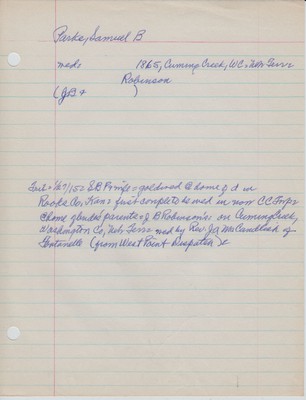 Parks, Samuel B
med: 1865, Cuming Creek, WC, Neb Terr
Robinson
(JB + )
S B Parks = gold wed @ home of d in
Rooks Co, Kans = first couple to be wed in now CC Twp
@ home of brides parents = J B Robinson's on Cuming Creek,
Washington Co, Neb Terr = wed by Rev J A McCandlish of
Fontanelle (from West Point Dispatch)